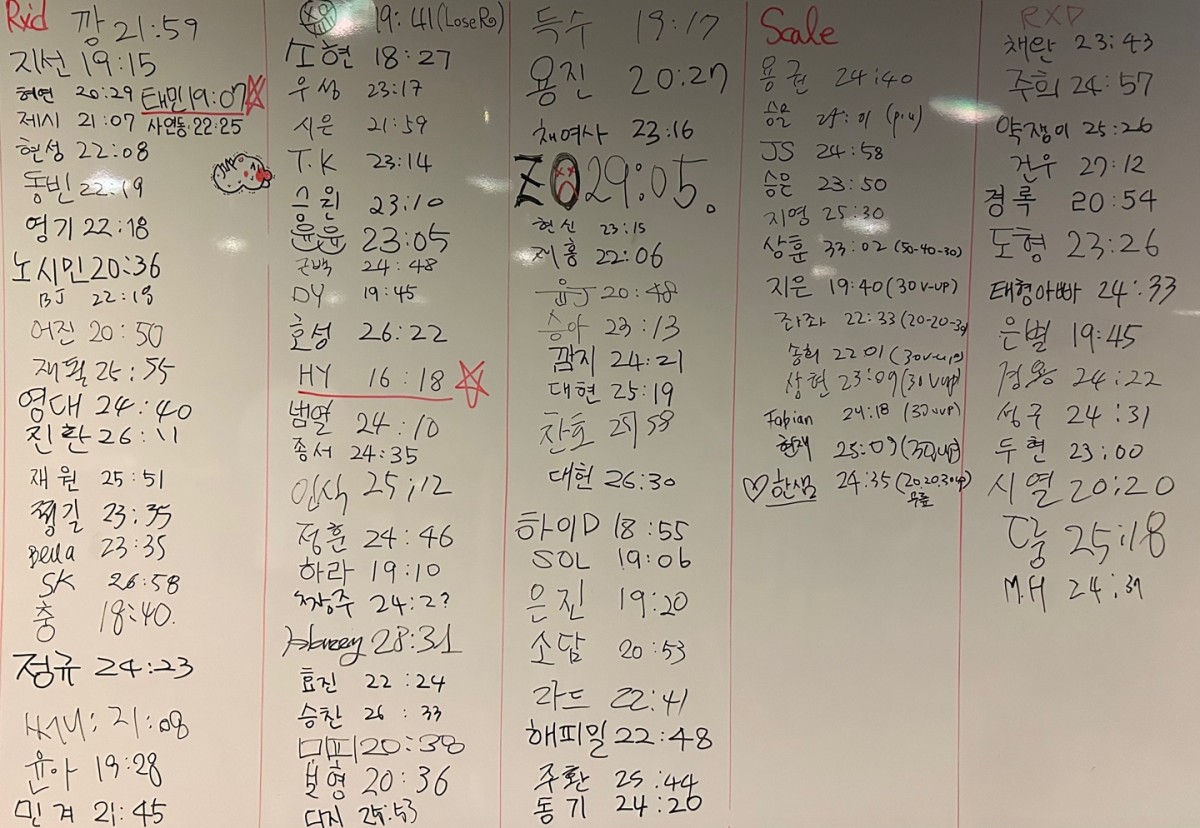 Rxd
깡 21:59
지선 19:15
혀연 20:29
태민 19:07
제시 21:07
사연동 22:25
현성 22:08
동빈 22:19
영기 22:18
노시민 20:36
BJ 22:18
어진 20:50
재필 25:55
영대 24:40
진환 26:11
재원 25:51
쩡길 23:35
Bella 23:35
SK 26:58
충 18:40.
정규 24:23
써니: 21:08
윤아 19:28
민겨 21:45
19:41 (LoseR)
소현 18:27
우성 23:17
시은 21:59
T.K 23:14
승원 23:10
윤윤 23:05
근백 24:48
DY 19:45
호성 26:22
HY 16:18
범열 24:10
종서 24:35
인식 25:12
정훈 24:46
하라 19:10
짱주 24:2?
28:31
효진 22:24
승찬 26:33
미피 20:38
보형 20:36
다지 25:53
득수 19:17
용진 20:27
채여사 23:16
ZO 29:05.
현신 23:15
재홍 22:06
윤J 20:48
승아 23:13
깜지 24:21
대현 25:19
찬호 25:58
대헌 26:30
하이D 18:55
SOL 19:06
은진 19:20
소담 20:53
라드 22:41
해피밀 22:48
주환 25:44
동기 24:20
Scale
용권 24:40
승윤
JS 24:58
승은 23:50
지영 25:30
상훈 33:02 (50-40-30)
지은 19:40 (30 V-up)
좌좌 22:33 (20-20-30
송희 22:01 (30 v-up)
상현 23:09 (30 Vup)
Fabian 24:18 (30 vup)
현재 25:09 (30 up)
한샘 24:35 (20.20.30
무릎
RXD
채란 23:43
주희 24:57
약쟁이 25:26
건우 27:12
경록 20:54
도형 23:26
태형아빠 24:33
은별 19:45
경용 24:22
성구 24:31
두현 23:00
시열 20:20
다훙 25:18
M.H 24:37